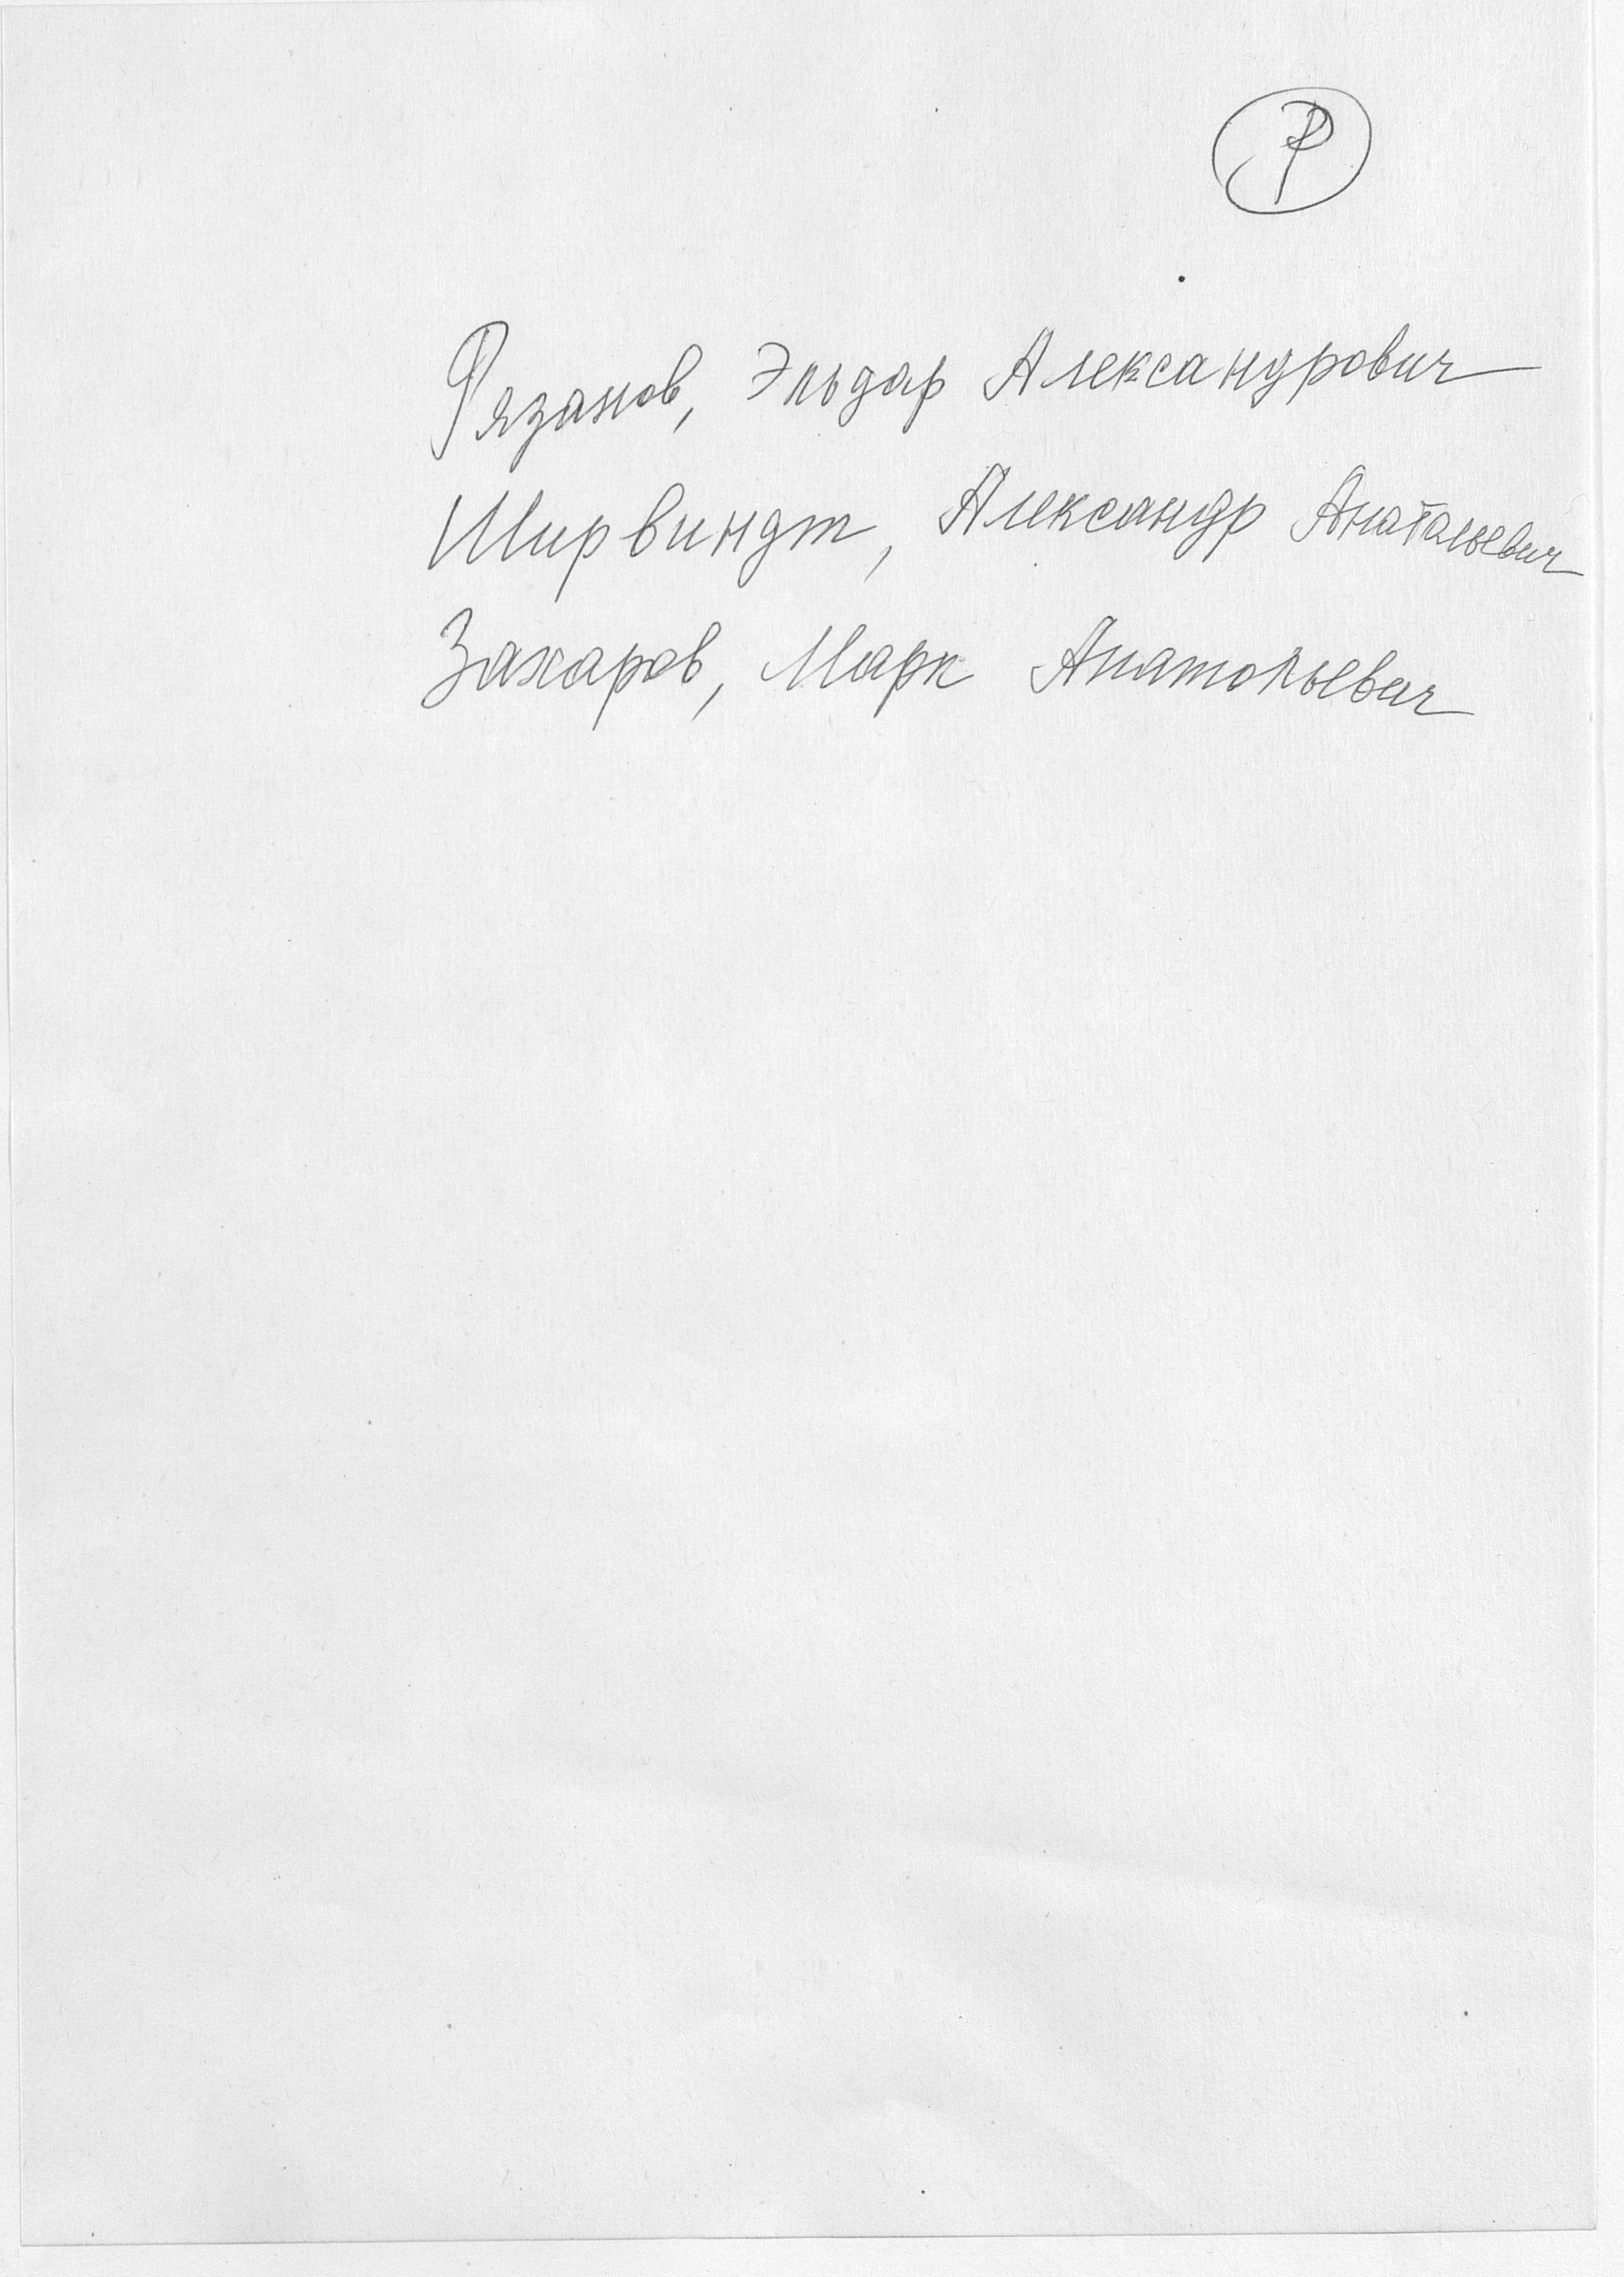 Р
Рязанов, Эльдар Александрович
Ширвиндт, Александр Анатольевич
Захаров, Марк Анатольевич